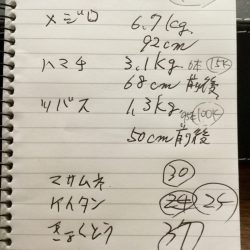 メジロ 6.7kg.
92cm
ハマチ 3.1kg. 6本 15K
68cm 前後
ツバス 1.3kg 100K
50cm 前後
マサムネ 30
ケイタン 24 24
きょくとう 37